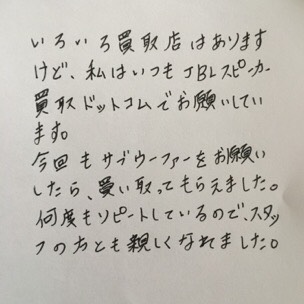 いろいろ買取店はあります
けど、私はいつもJBLスピーカー
買取ドットコムでお願いしてい
ます。
今回もサブウーファーをお願い
したら、買い取ってもらえました。
何度もソピートしているので、スタッ
フの方とも親しくなれました。